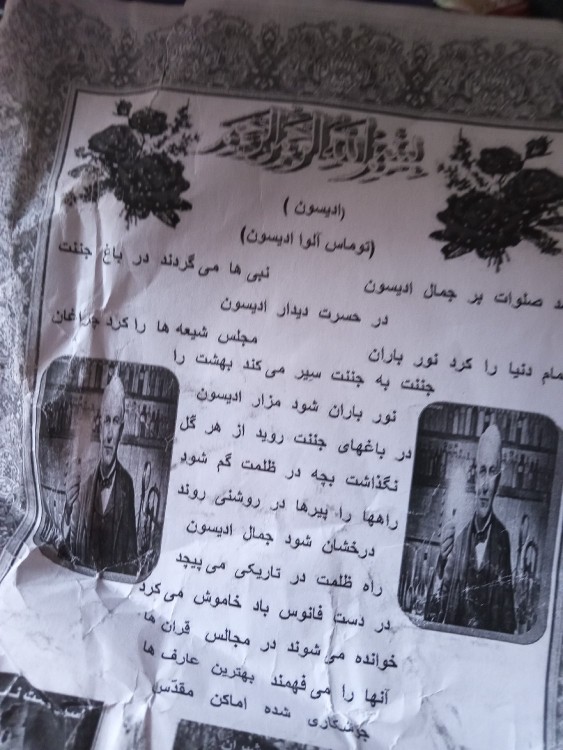 بسم الله الرحمن الرحیم
(ادیسون)
(توماس آلوا ادیسون)
صلوات بر جمال ادیسون نبی ها می گردند در باغ جننت
در حسرت دیدار ادیسون
دنیا را کرد نور باران مجلس شیعه ها را کرد چراغان
جننت به جننت سیر می کند بهشت را
نور باران شود مزار ادیسون
در باغهای جننت روید از هر گل
نگذاشت بچه در ظلمت گم شود
راهها را پیرها در روشنی روند
درخشان شود جمال ادیسون
راه ظلمت در تاریکی می پیچد
در دست فانوس باد خاموش می کرد
خوانده می شوند در مجالس قران ها
آنها را می فهمند بهترین عارف ها
جوشکاری شده اماکن مقدّس